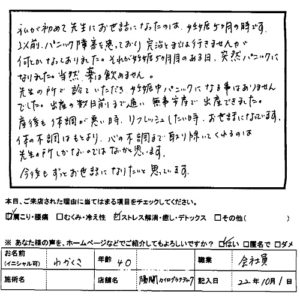 私が初めて先生にお世話になったのは、妊娠5ヶ月の時です。
以前、パニック障害を患っており 完治とまでは行きませんが
何とかなっておりました。それが妊娠5ヶ月目のある日、突然パニックに
なりました。当然、薬は飲めません。
先生の所で診ていただき 妊娠中パニックになる事はありません
でした。出産の数日前まで通い 無事安産で出産できました。
産後も体調が悪い時、リフレッシュしたい時、お世話になってます。
体の不調はもとより、心の不調まで取り除いてくれるのは
先生の所しかないのではないかと思います。
今後もずっとお世話になりたいと思っています。
本日、ご来店された理由に当てはまる項目をチェックしてください。
肩こり・腰痛 □むくみ・冷え性 ストレス解消・癒し・デトックス □その他( )
※ あなた様の声を、ホームページなどでご紹介してもよろしいですか? はい □匿名で □ダメ
お名前 (イニシャル可) わかくさ 年齢 40 職業 会社員
施術名 店舗名 記入日 22年10月1日